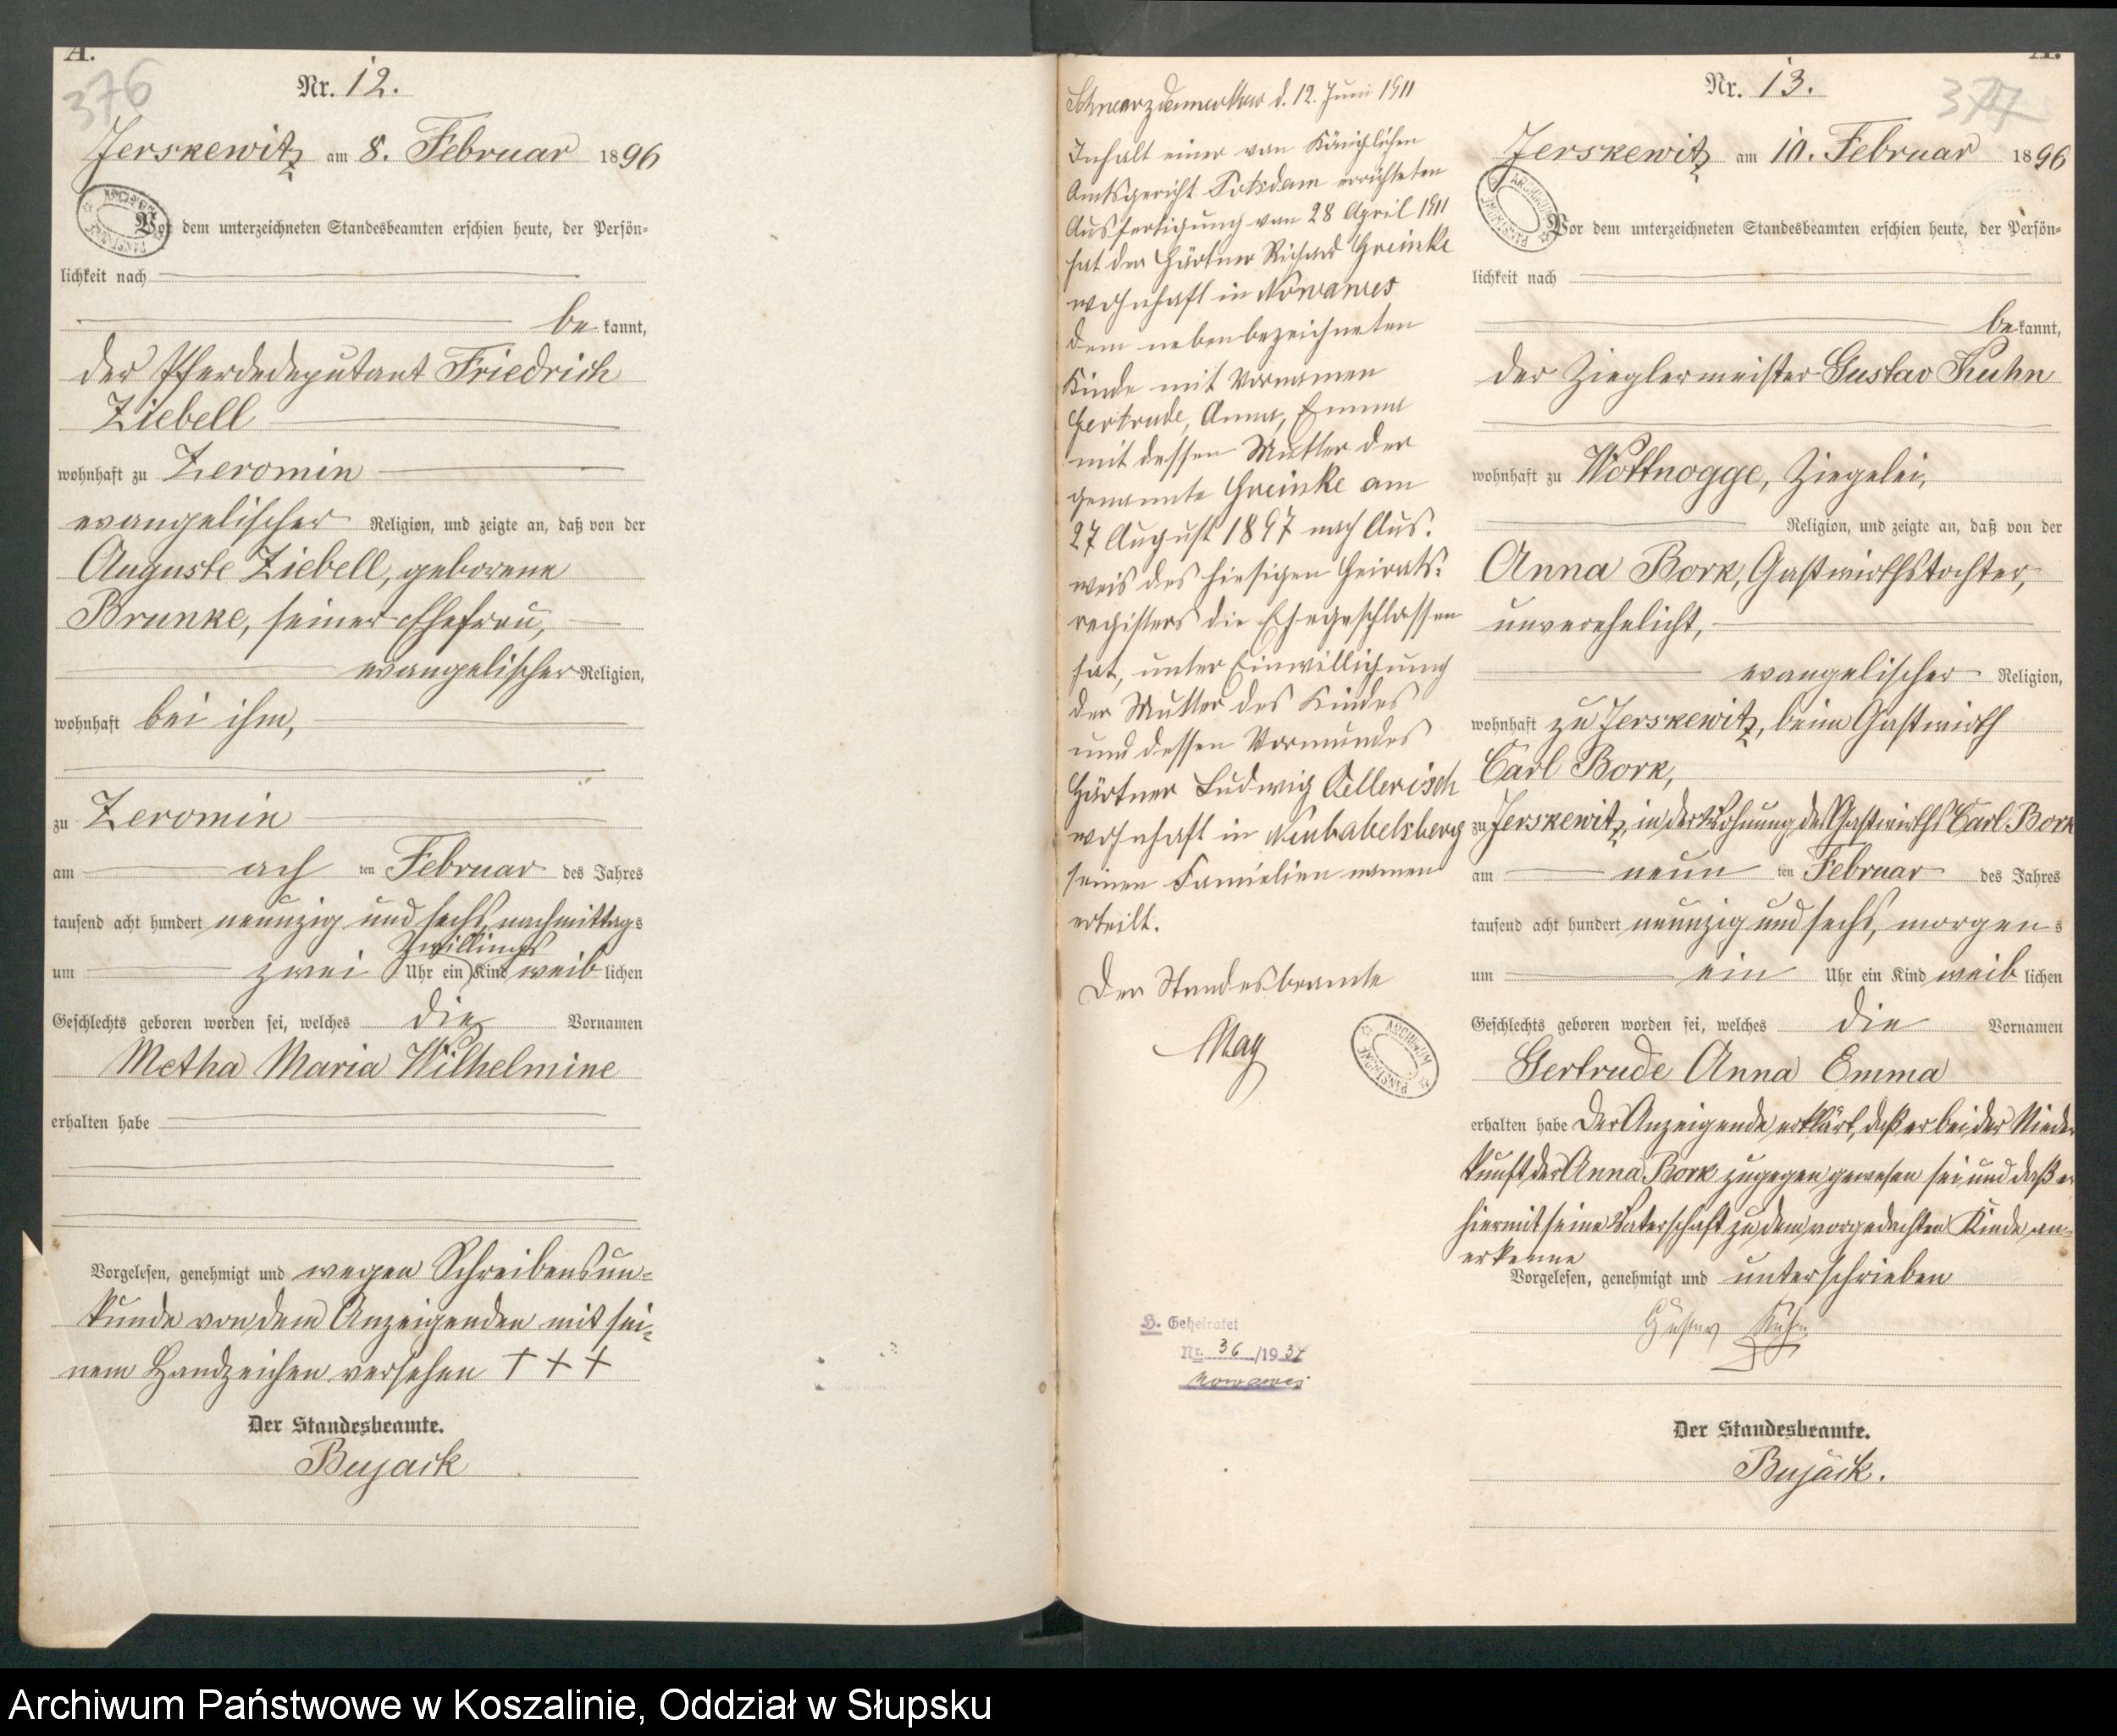 A.
376
Nr. 12.
Jerskewitz am 8. Februar 1896
Vor dem unterzeichneten Standesbeamten erschien heute, der Persön-
lichkeit nach
be kannt,
der Pferdedeputant Friedrich
Ziebell
wohnhaft zu Zeromin
evangelischer Religion, und zeigte an, daß von der
Auguste Ziebell, geborene
Brunke, seiner Ehefrau,
evangelischer Religion,
wohnhaft bei ihm,
zu Zeromin
am ach ten Februar des Jahres
tausend acht hundert neunzig und sechs nachmittags
Zwillings
um zwei Uhr ein Kind weib lichen
Geschlechts geboren worden sei, welches die Vornamen
Metha Maria Wilhelmine
erhalten habe
Vorgelesen, genehmigt und wegen Schreibensun-
kunde von dem Anzeigenden mit sei-
nem Handzeichen versehen + + +
Der Standesbeamte.
Bujack
Schwarzdamerkow d. 12. Juni 1911
Inhalt einer von Königlichen
Amtsgericht Potsdam errichteten
Ausfertigung vom 28 April 1911
hat der Gärtner Richard Greinke
wohnhaft in Nowawes
dem nebenbezeichneten
Kinde mit Vornamen
Gertrude, Anna, Emma
mit dessen Mutter der
genannte Greinke am
27 August 1897 nach Aus-
weis des hiesigen Heirats-
registers die Ehe geschlossen
hat, unter Einwilligung
der Mutter des Kindes
und dessen Vormundes
Gärtner Ludwig Kellerisch
wohnhaft in Neubabelsberg
seinen Familien namen
erteilt.
Der Standesbeamte
May
ARCHIWUM PAŃSTWOWE
H. Geheiratet
Nr. 36 /1934
Nowawes
A.
377
Nr. 13.
Jerskewitz am 10. Februar 1896
Vor dem unterzeichneten Standesbeamten erschien heute, der Persön-
lichkeit nach
be kannt,
der Zieglermeister Gustav Kuhn
wohnhaft zu Wottnogge, Ziegelei,
Religion, und zeigte an, daß von der
Anna Bork, Gastwirthstochter,
unverehelicht,
evangelischer Religion,
wohnhaft zu Jerskewitz, beim Gastwirth
Carl Bork,
zu Jerskewitz, in der Wohnung des Gastwirths Carl Bork
am neun ten Februar des Jahres
tausend acht hundert neunzig und sechs, morgens
um ein Uhr ein Kind weib lichen
Geschlechts geboren worden sei, welches die Vornamen
Gertrude Anna Emma
erhalten habe Der Anzeigende erklärt, daß er bei der Nieder
kunft der Anna Bork zugegen gewesen sei und daß er
hiermit seine Vaterschaft zu dem vorgedachten Kinde an-
erkenne
Vorgelesen, genehmigt und unterschrieben
Gustav Kuhn
Der Standesbeamte.
Bujack.
Archiwum Państwowe w Koszalinie, Oddział w Słupsku